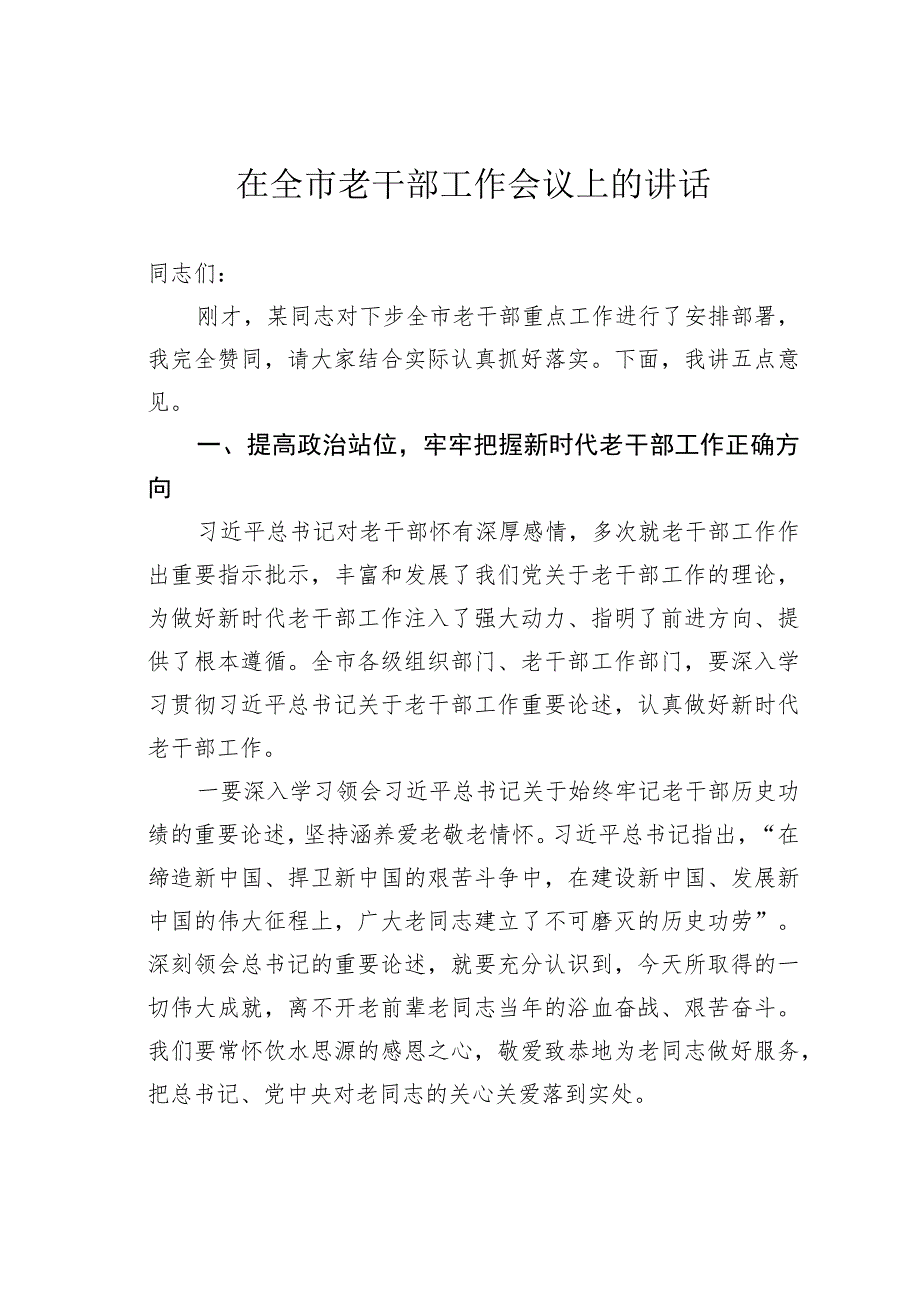 在全市老干部工作会议上的讲话
同志们：
刚才，某同志对下步全市老干部重点工作进行了安排部署，
我完全赞同，请大家结合实际认真抓好落实。下面，我讲五点意
见。
一、提高政治站位，牢牢把握新时代老干部工作正确方
向
习近平总书记对老干部怀有深厚感情，多次就老干部工作作
出重要指示批示，丰富和发展了我们党关于老干部工作的理论，
为做好新时代老干部工作注入了强大动力、指明了前进方向、提
供了根本遵循。全市各级组织部门、老干部工作部门，要深入学
习贯彻习近平总书记关于老干部工作重要论述，认真做好新时代
老干部工作。
一要深入学习领会习近平总书记关于始终牢记老干部历史功
绩的重要论述，坚持涵养爱老敬老情怀。习近平总书记指出，“在
缔造新中国、捍卫新中国的艰苦斗争中，在建设新中国、发展新
中国的伟大征程上，广大老同志建立了不可磨灭的历史功劳”。
深刻领会总书记的重要论述，就要充分认识到，今天所取得的一
切伟大成就，离不开老前辈老同志当年的浴血奋战、艰苦奋斗。
我们要常怀饮水思源的感恩之心，敬爱致恭地为老同志做好服务，
把总书记、党中央对老同志的关心关爱落到实处。